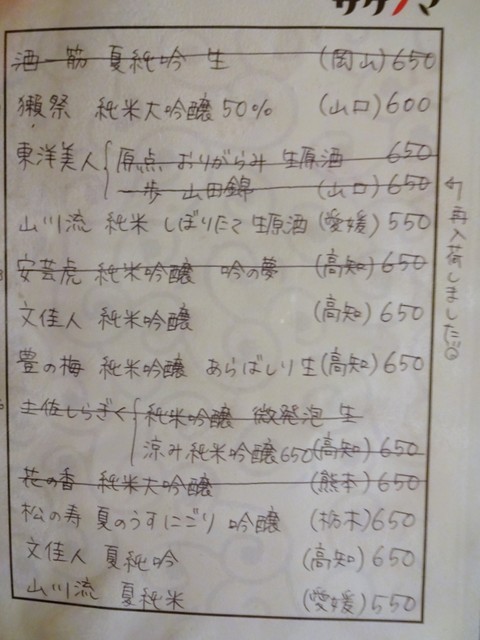 サケノマ
酒一筋 夏純吟 生 (岡山)650
獺祭 純米大吟醸50% (山口)600
東洋美人 原点 おりがらみ 生原酒 650
一歩 山田錦 (山口)650
山川流 純米 しぼりたて生原酒 (愛媛) 550
安芸虎 純米吟醸 吟の夢 (高知)650
文佳人 純米吟醸 (高知)650
豊の梅 純米吟醸 あらばしり生(高知)650
土佐しらぎく 純米吟醸 微発泡 生
涼み純米吟醸650(高知)650
花の香 純米大吟醸 (熊本)650
松の寿 夏のうすにごり 吟醸 (栃木)650
文佳人 夏純吟 (高知)650
山川流 夏純米 (愛媛)550
再入荷しました